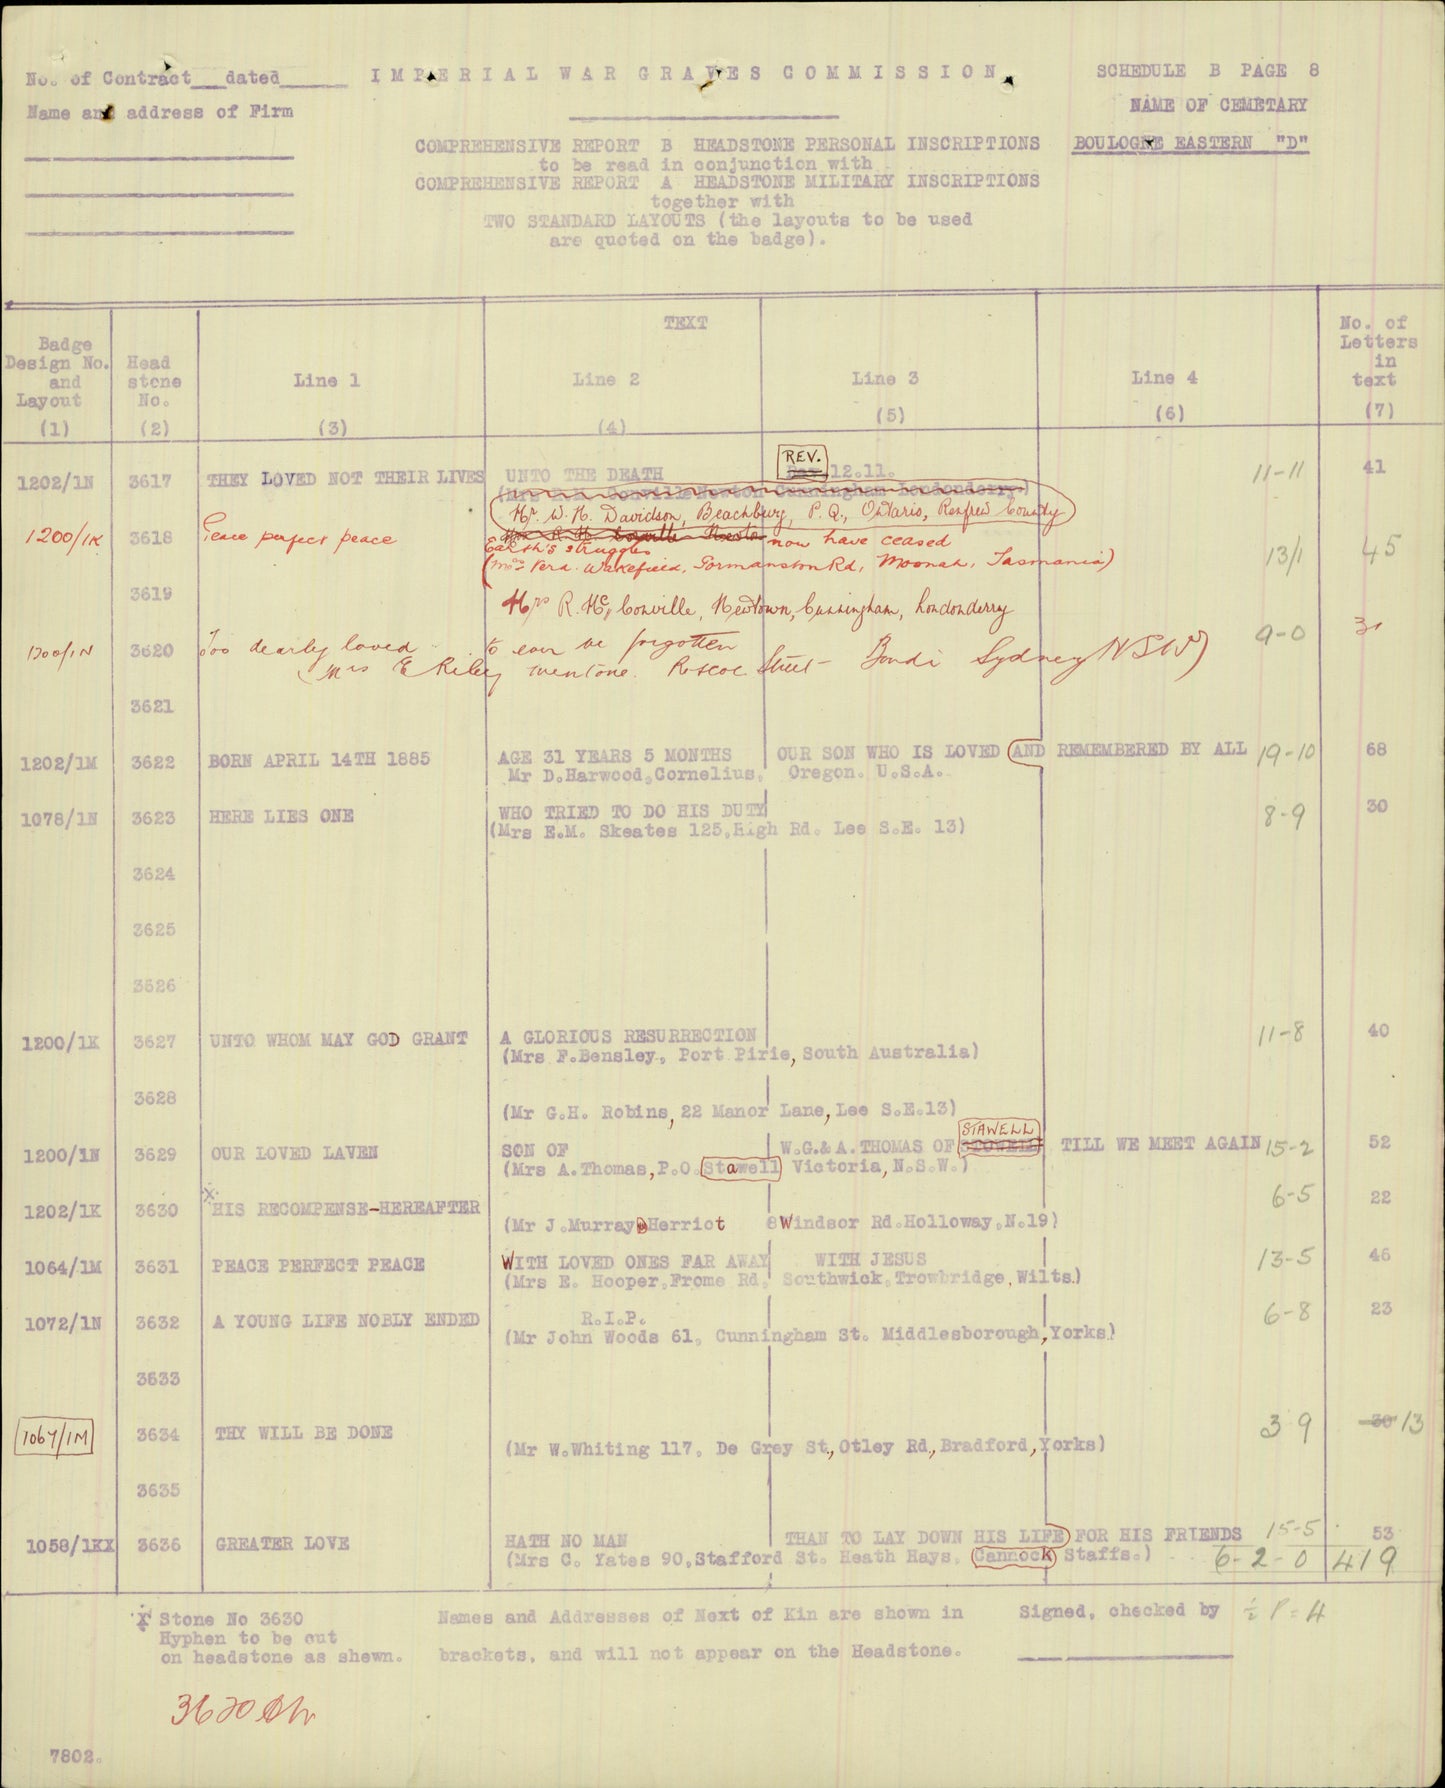 No. of Contract___dated______ IMPERIAL WAR GRAVES COMMISSION. SCHEDULE B PAGE 8
Name and address of Firm NAME OF CEMETARY
COMPREHENSIVE REPORT B HEADSTONE PERSONAL INSCRIPTIONS BOULOGNE EASTERN "D"
to be read in conjunction with
COMPREHENSIVE REPORT A HEADSTONE MILITARY INSCRIPTIONS
together with
TWO STANDARD LAYOUTS (the layouts to be used
are quoted on the badge).
TEXT
Badge Design No. and Layout (1)
Head stone No. (2)
Line 1 (3)
Line 2 (4)
Line 3 (5)
Line 4 (6)
No. of Letters in text (7)
REV.
1202/1N 3617 THEY LOVED NOT THEIR LIVES UNTO THE DEATH 12.11. 11-11 41
Mr. W. H. Davidson, Beachburg, P.Q., Ontario, Renfrew County
1200/1K 3618 Peace perfect peace Earth's struggles now have ceased 13/1 45
(Mrs Verd. Wakefield, Gormanston Rd, Moonah, Tasmania)
3619
Mrs R. Mc. Conville, Newtown, Cunningham, Londonderry
1200/1N 3620 Too dearly loved to ever be forgotten 9-0 31
(Mrs E Riley Mentone. Roscoe Street - Bondi Sydney NSW)
3621
1202/1M 3622 BORN APRIL 14TH 1885 AGE 31 YEARS 5 MONTHS OUR SON WHO IS LOVED AND REMEMBERED BY ALL 19-10 68
Mr D.Harwood,Cornelius, Oregon. U.S.A.
1078/1N 3623 HERE LIES ONE WHO TRIED TO DO HIS DUTY 8-9 30
(Mrs E.M. Skeates 125,High Rd. Lee S.E. 13)
3624
3625
3626
1200/1K 3627 UNTO WHOM MAY GOD GRANT A GLORIOUS RESURRECTION 11-8 40
(Mrs F.Bensley, Port Pirie, South Australia)
3628
(Mr G.H. Robins, 22 Manor Lane, Lee S.E.13)
STAWELL
1200/1N 3629 OUR LOVED LAVEN SON OF W.G.& A. THOMAS OF TILL WE MEET AGAIN 15-2 52
(Mrs A.Thomas, P.O. Stawell Victoria, N.S.W.)
1202/1K 3630 X HIS RECOMPENSE-HEREAFTER 6-5 22
(Mr J.Murray Herriot 8 Windsor Rd.Holloway.N.19)
1064/1M 3631 PEACE PERFECT PEACE WITH LOVED ONES FAR AWAY WITH JESUS 13-5 46
(Mrs E. Hooper,Frome Rd. Southwick,Trowbridge, Wilts.)
1072/1N 3632 A YOUNG LIFE NOBLY ENDED R.I.P. 6-8 23
(Mr John Woods 61, Cunningham St. Middlesborough, Yorks)
3633
1067/1M 3634 THY WILL BE DONE 3 9 30 13
(Mr W.Whiting 117, De Grey St., Otley Rd., Bradford, Yorks)
3635
1058/1KX 3636 GREATER LOVE HATH NO MAN THAN TO LAY DOWN HIS LIFE FOR HIS FRIENDS 15-5 53
(Mrs C. Yates 90,Stafford St. Heath Hays, Cannock Staffs.) 6-2-0 419
X Stone No 3630
Hyphen to be cut
on headstone as shewn.
Names and Addresses of Next of Kin are shown in
brackets, and will not appear on the Headstone.
Signed, checked by
3620
7802.